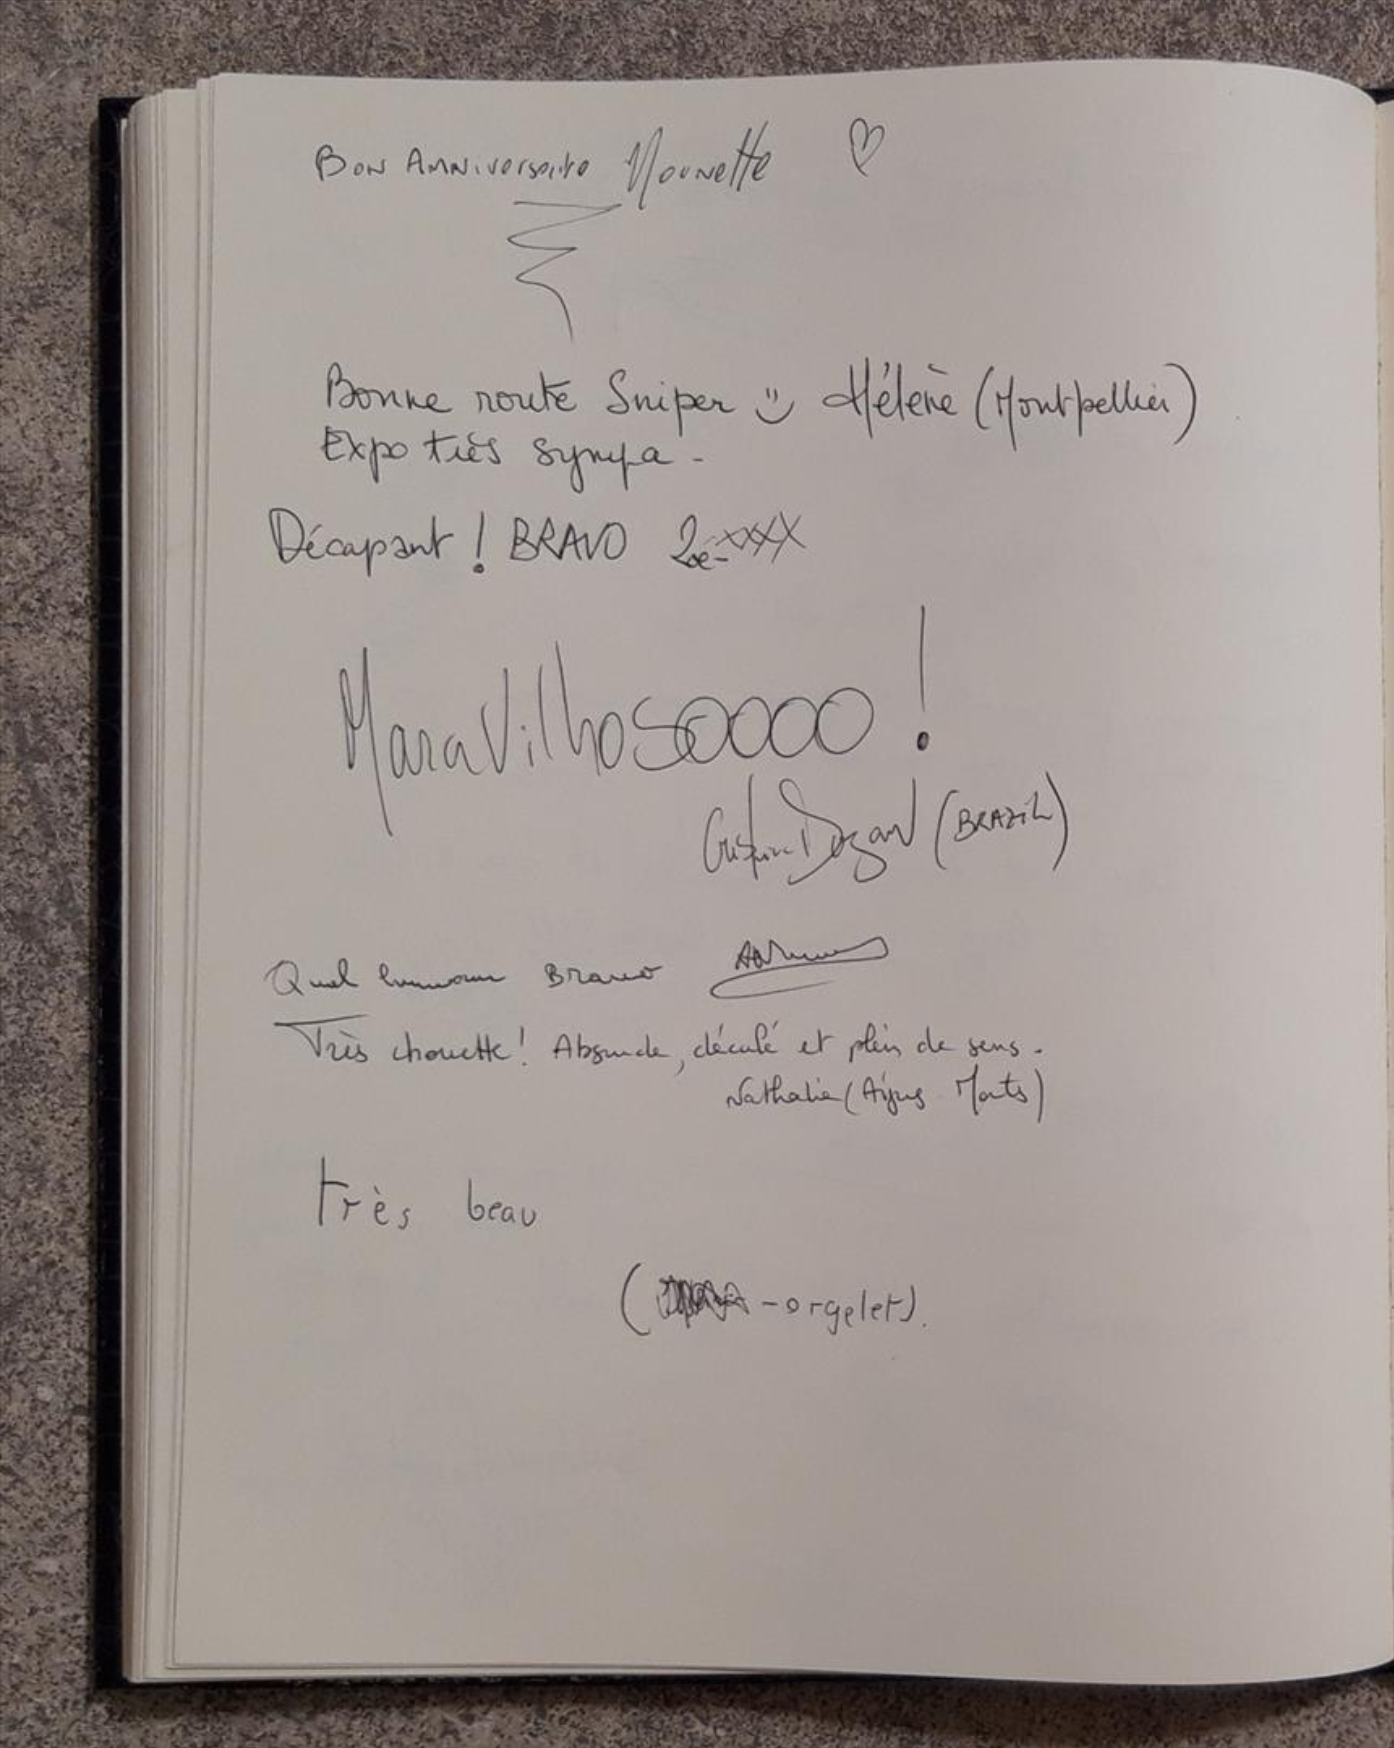 Bon Anniversaire Nounette
Bonne route Sniper Hélène (Montpellier)
Expo très sympa -
Décapant ! BRAVO Zoé-XXX
Maravilhosoooo !
(BRAZIL)
Quel humour Bravo
Très chouette ! Absurde, décalé et plein de sens.
Nathalie (Aigues Mortes)
très beau
( -orgelet).